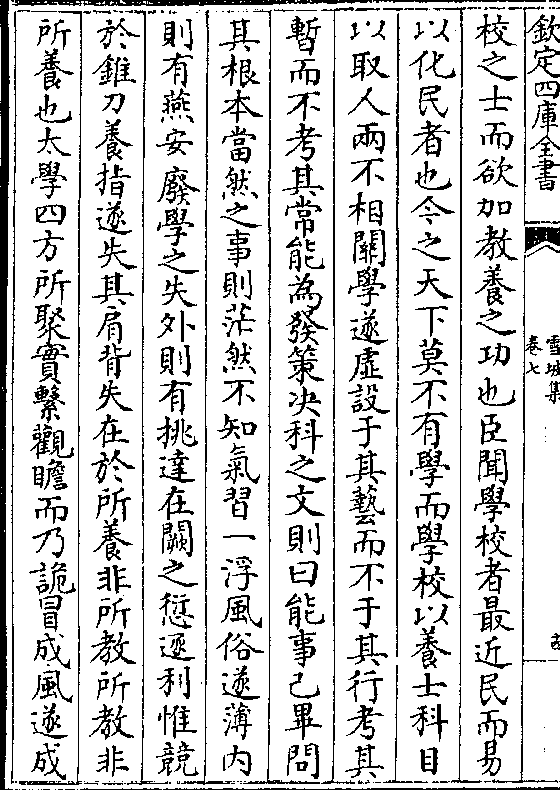 欽定四庫全書
雪坡集
卷七
校之士而欲加教養之功也臣聞學校者最近民而易
以化民者也今之天下莫不有學而學校以養士科目
以取人兩不相關學遂虛設于其藝而不于其行考其
暫而不考其常能為發策决科之文則曰能事已畢問
其根本當然之事則茫然不知氣習一浮風俗遂薄内
則有燕安廢學之失外則有挑達在闕之愆逐利惟競
於錐刀養指遂失其肩背失在於所養非所教所教非
所養也太學四方所聚實繫觀瞻而乃詭冒成風遂成